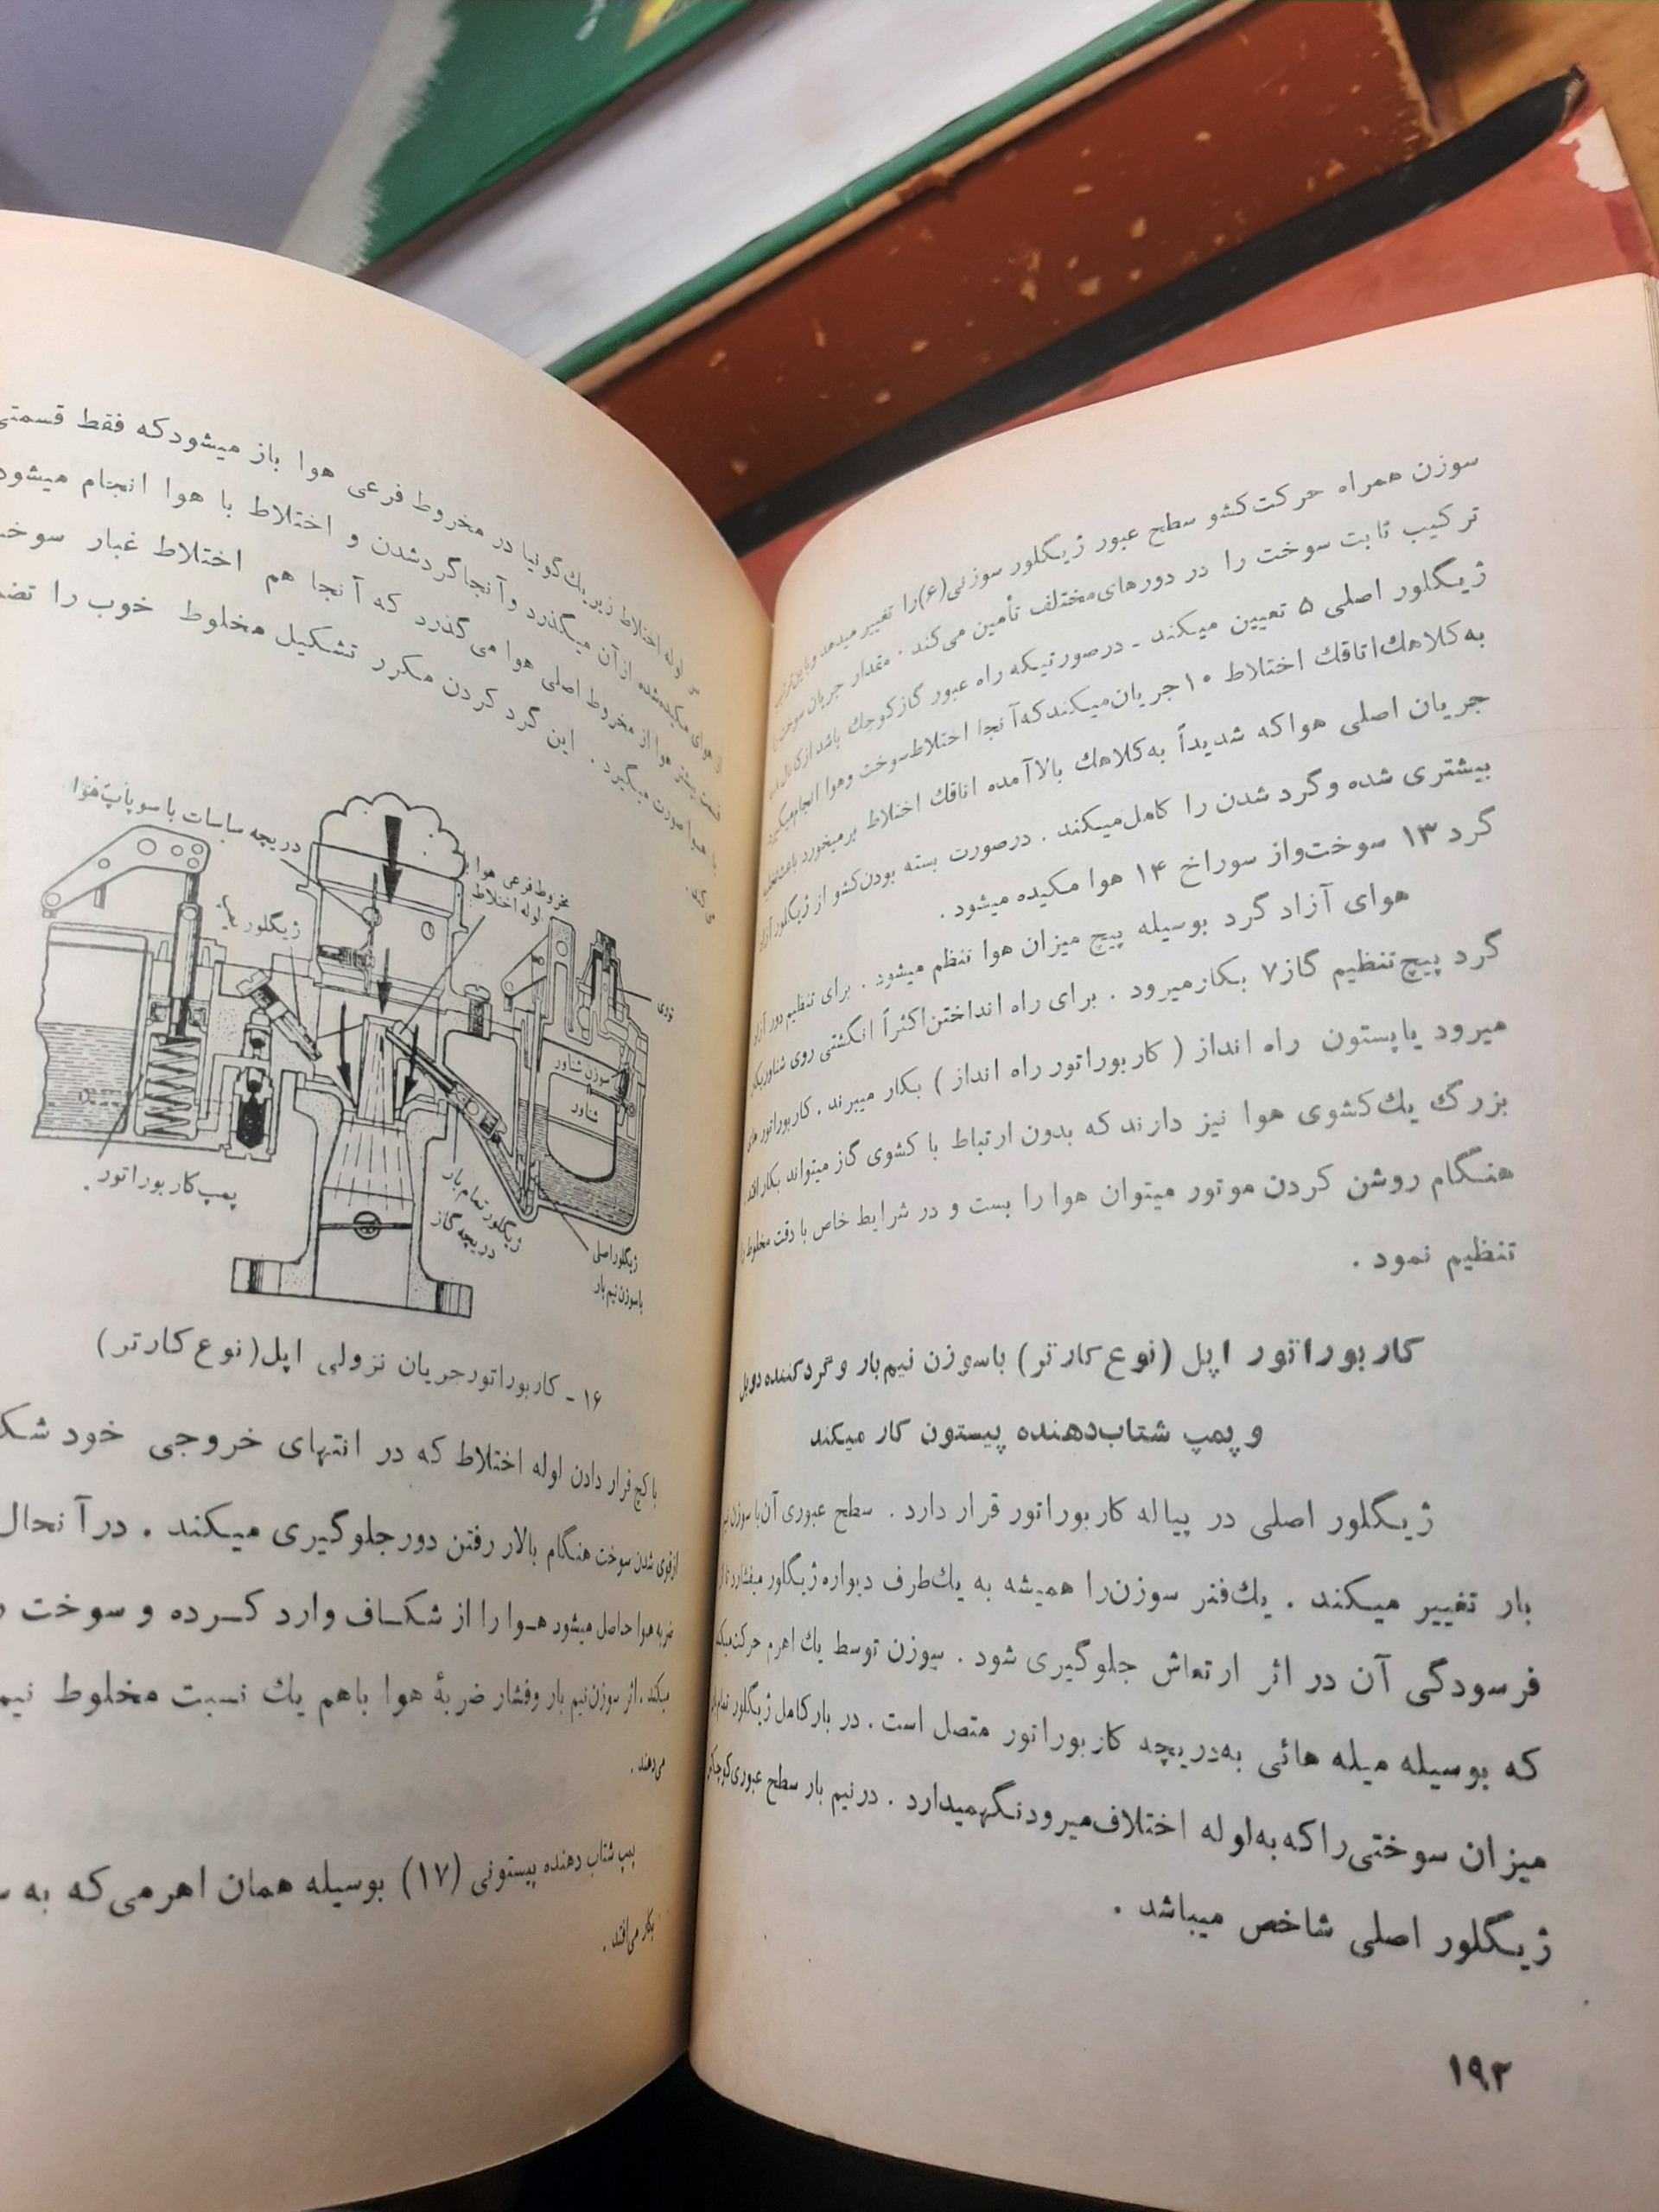 سوزن همراه حرکت‌کشو سطح عبور ژیگلور سوزنی(۶)را تغییر میدهد و باین ترتیب
ترکیب ثابت سوخت را در دورهای‌مختلف تأمین می‌کند . مقدار جریان سوخت را
ژیگلور اصلی ۵ تعیین میکند ـ درصورتیکه راه عبور گاز کوچک باشد از کانال
به‌کلاهك‌اتاقك اختلاط ۱۰جریان‌میکندکه‌آنجا اختلاط‌سوخت وهوا انجام‌میگیرد
جریان اصلی هواکه شدیداً به‌کلاهك بالاآمده اتاقك اختلاط برمیخورد باعث
بیشتری شده وگرد شدن را کامل‌میکند . درصورت بسته بودن‌کشو از ژیگلور آزاد
گرد ۱۳ سوخت‌واز سوراخ ۱۴ هوا مکیده میشود .
هوای آزاد گرد بوسیله پیچ میزان هوا تنظم میشود . برای تنظیم دور آزاد
گرد پیچ‌تنظیم گاز۷ بکارمیرود . برای راه انداختن‌اکثراً انگشتی روی شناوربکار
میرود یاپستون راه انداز ( کاربوراتور راه انداز ) بکار میبرند . کاربوراتور های
بزرگ یك‌کشوی هوا نیز دارند که بدون ارتباط با کشوی گاز میتواند بکارافتد.
هنگام روشن کردن موتور میتوان هوا را بست و در شرایط خاص با دقت مخلوط را
تنظیم نمود .
کاربوراتور اپل (نوع کارتر) باسوزن نیم‌بار و گردکننده دوبل
و پمپ شتاب‌دهنده پیستون کار میکند
ژیگلور اصلی در پیاله کاربوراتور قرار دارد . سطح عبوری آن‌با سوزن‌نیم
بار تغییر میکند . یك‌فنر سوزن‌را همیشه به یك‌طرف دیواره ژیگلور میفشارد تا از
فرسودگی آن در اثر ارتعاش جلوگیری شود . سوزن توسط یك اهرم حرکت‌میکند
که بوسیله میله هائی به‌دریچه کاربوراتور متصل است . در بار کامل ژیگلور تمام‌بار
میزان سوختی‌راکه‌به‌لوله اختلاف‌میرودنگهمیدارد . درنیم بار سطح عبوری‌کوچکتر
ژیگلور اصلی شاخص میباشد .
۱۹۲
لوله اختلاط زیریك‌گونیا در مخروط فرعی هوا باز میشودکه فقط قسمتی
هوای مکیده‌شده ازآن میگذرد وآنجاگردشدن و اختلاط با هوا انجام میشود
قسمت بیشتر هوا از مخروط اصلی هوا می‌گذرد که آنجا هم اختلاط غبار
با هوا صورت میگیرد . این گرد کردن مکرر تشکیل مخلوط خوب را
دریچه ساسات با سوپاپ هوا
مخروط فرعی هوا
لوله اختلاط
ژیگلور
توری
سوزن شناور
شناور
پمپ کاربوراتور
ژیگلور تمام‌بار
دریچه گاز
ژیگلور اصلی
باسوزن نیم بار
۱۶ ـ کاربوراتورجریان نزولی اپل(نوع کارتر)
باکج قرار دادن لوله اختلاط که در انتهای خروجی خود
ازقوی شدن سوخت هنگام بالار رفتن دورجلوگیری میکند . درآنحال
ضربه هوا حاصل میشود هـوا را از شکـاف وارد کـرده و سوخت
میکند . اثر سوزن‌نیم بار وفشار ضربهٔ هوا باهم یك نسبت مخلوط
می‌دهند .
پمپ شتاب دهنده پیستونی (۱۷) بوسیله همان اهرمی‌که به
بکار می‌افتد .